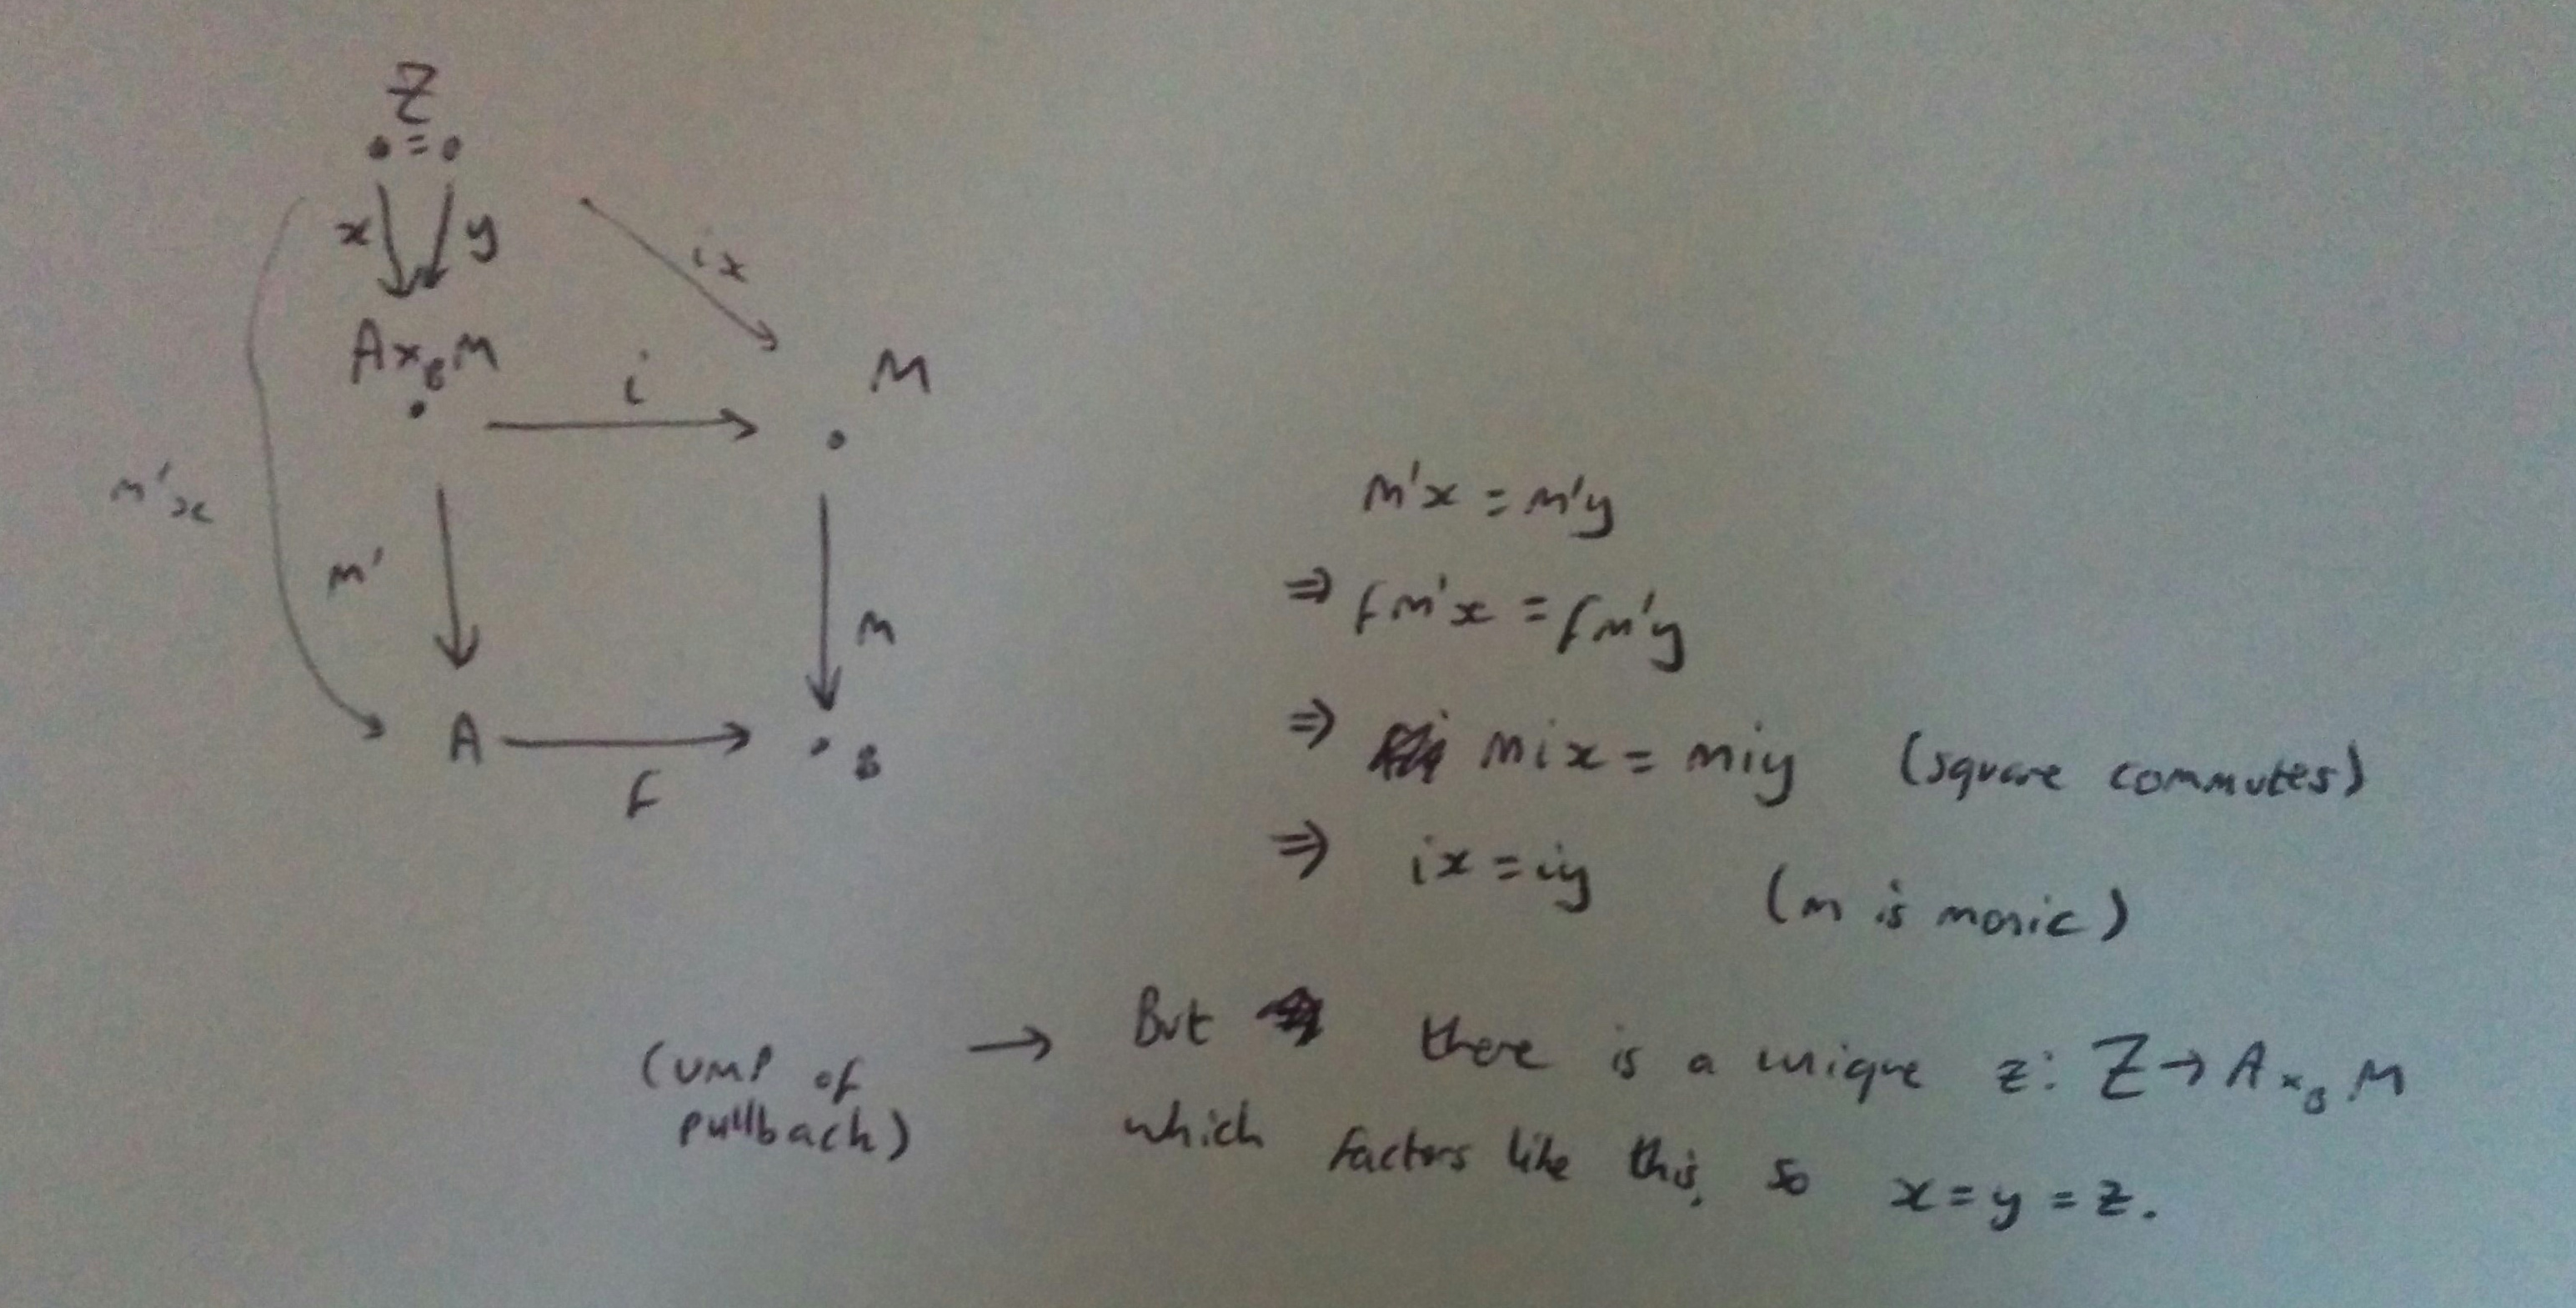 Z
• = •
x y
ix
A×_B M
M
i
m'x
m'
m
A
B
f
m'x = m'y
⇒ fm'x = fm'y
⇒ mix = miy (square commutes)
⇒ ix = iy (m is monic)
(UMP of pullback) → But there is a unique z: Z → A×_B M
which factors like this, so x = y = z.